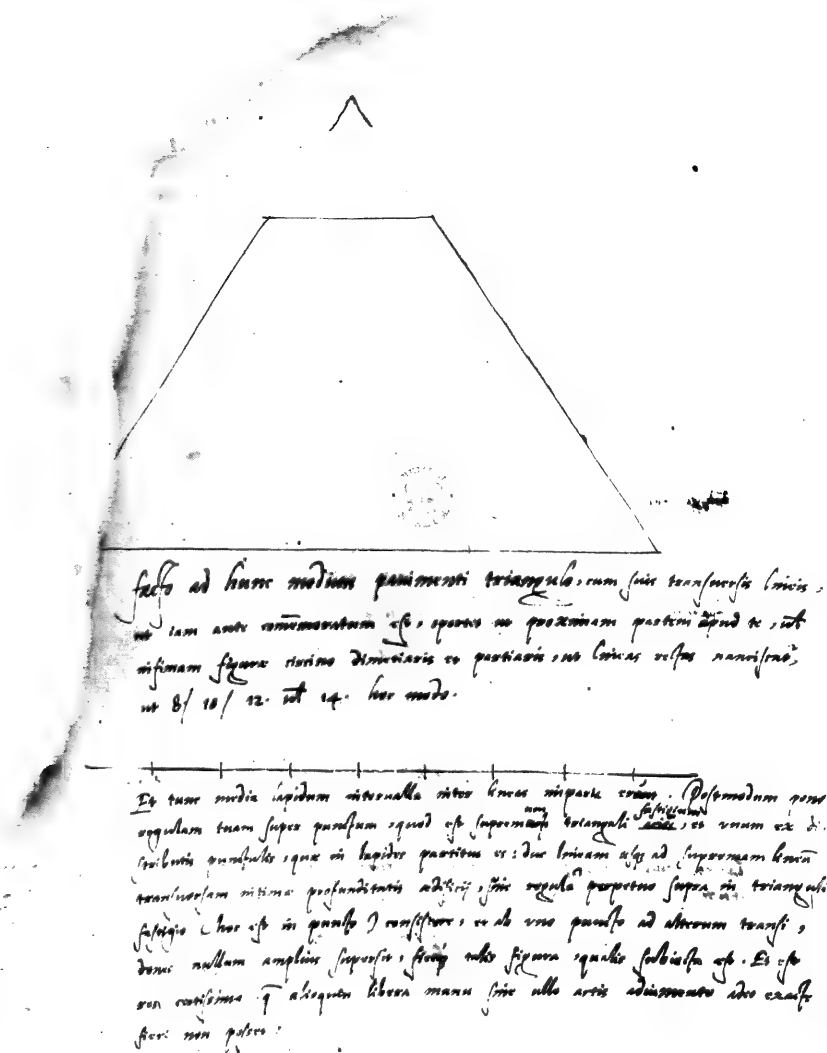 facto ad hunc modum pauimenti triangulo, cum suis transuersis lineis,
ut iam ante commemoratum est, oportet ut proximam partem apud te, uel
infimam figuræ circino dimetiaris et partiaris, ut lineas rectas
ut 8/ 10/ 12. uel 14. hoc modo.
Et tunc media lapidum interualla inter lineas Postmodum pone
regulam tuam super punctum, quod est trianguli fastigium, et unum ex di-
stributis punctulis, quæ in lapides partitus es: duc lineam usque ad supremam lineam
transuersam intimæ profunditatis ædificij, sine regulam perpetuo supra in trianguli
fastigio (hoc est in puncto) consistere, et ab uno puncto ad alterum transi,
donec nullum amplius supersit, talis figura, qualis subiecta est. Et est
res certissima alioquin libera manu sine ullo artis adiumento adeo exacte
fieri non posset.